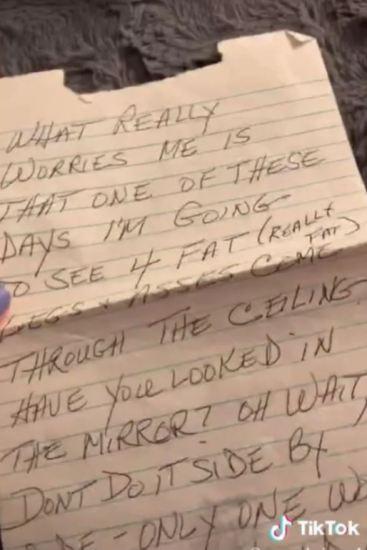 WHAT REALLY
WORRIES ME IS
THAT ONE OF THESE
DAYS I'M GOING
TO SEE 4 FAT (REALLY FAT)
LEGS + ASSES COME
THROUGH THE CEILING.
HAVE YOU LOOKED IN
THE MIRROR? OH WAIT,
DONT DO IT SIDE BY
- ONLY ONE
TikTok